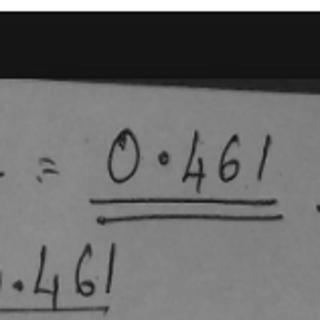 = 0.461
.461